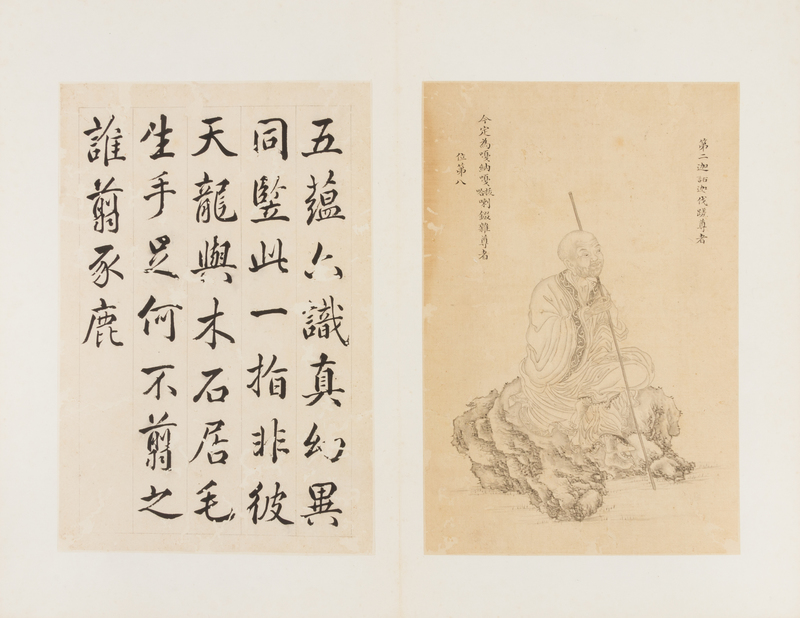 第二迦諾迦伐蹉尊者
今定為嘎納嘎拔哈喇錣雜尊者
位第八
五蘊六識真幻異
同竪此一指非彼
天龍與木石居毛
生手足何不翦之
誰翦豕鹿